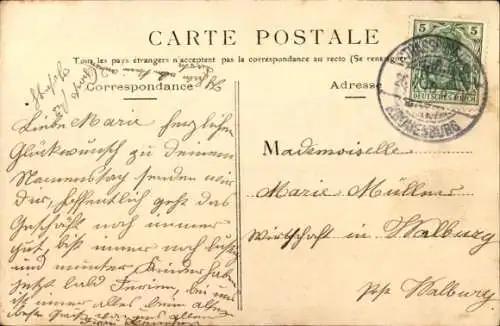 CARTE POSTALE
Tous les pays étrangers n'acceptent pas la correspondance au recto (Se renseigner
Correspondance
Adresse
5 5
DEUTSCHES REICH
STRASSBURG
KRONENBURG
Liebe Marie herzlichen
Glückwunsch zu deinem
Namenstag senden wir
dir, hoffentlich geht das
Geschäft noch immer
gut, bist immer noch lustig
und munter Kinder haben
jetzt bald Ferien, bei uns
ist immer alles beim alten
beste Grüße von uns allen
Mademoiselle
Marie Müller
Wirtschaft in Walburg
Post Walburg